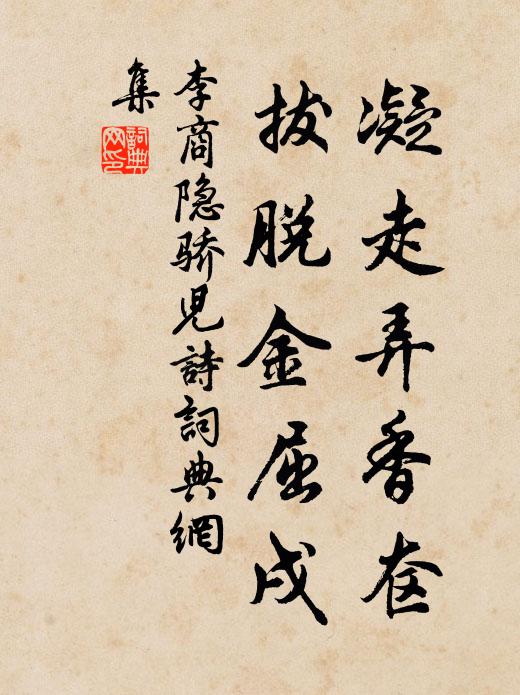 凝走弄香奁
拔脱金屈戌
李商隐骄児詩詞典網
集
詞典
网印